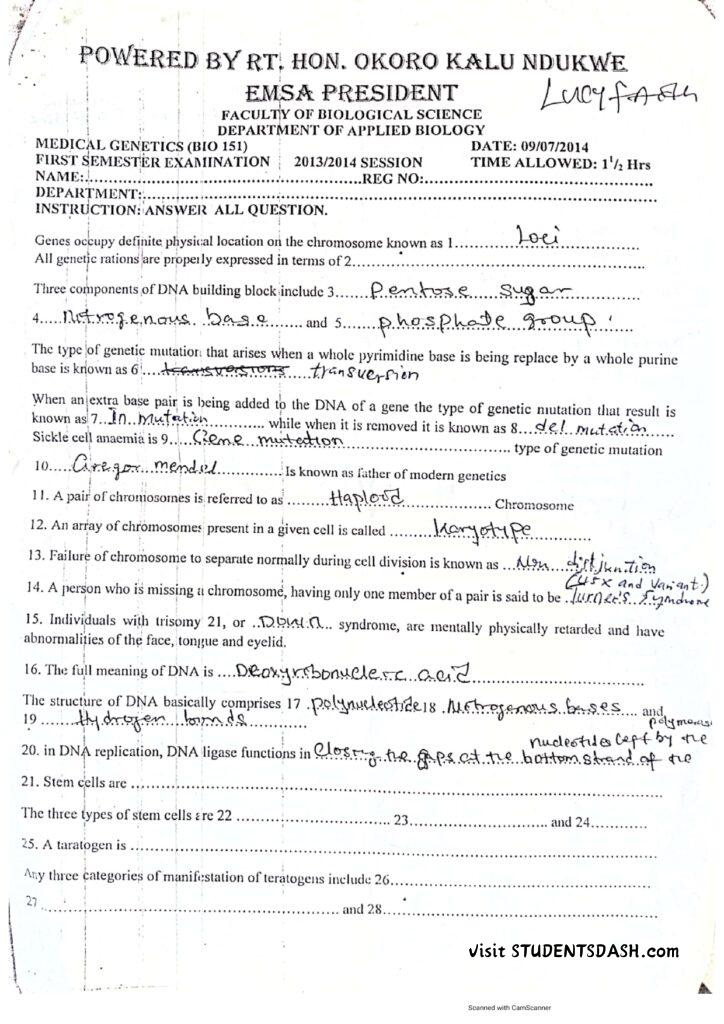 POWERED BY RT. HON. OKORO KALU NDUKWE
EMSA PRESIDENT
FACULTY OF BIOLOGICAL SCIENCE
DEPARTMENT OF APPLIED BIOLOGY
MEDICAL GENETICS (BIO 151) DATE: 09/07/2014
FIRST SEMESTER EXAMINATION 2013/2014 SESSION TIME ALLOWED: 1 1/2 Hrs
NAME:.......................REG NO:.......................
DEPARTMENT:.......................
INSTRUCTION: ANSWER ALL QUESTION.
Genes occupy definite physical location on the chromosome known as 1.......Loci.......
All genetic rations are properly expressed in terms of 2.......................
Three components of DNA building block include 3......Pentose sugar
4....Nitrogenous base....... and 5.....phosphate group
The type of genetic mutation that arises when a whole pyrimidine base is being replace by a whole purine
base is known as 6....transversions....transversion
When an extra base pair is being added to the DNA of a gene the type of genetic mutation that result is
known as 7..In mutation........ while when it is removed it is known as 8....del mutation....
Sickle cell anaemia is 9....Gene mutation....................... type of genetic mutation
10.....Gregor mendel............Is known as father of modern genetics
11. A pair of chromosomes is referred to as ........Haploid.................. Chromosome
12. An array of chromosomes present in a given cell is called ........Karyotype.......
13. Failure of chromosome to separate normally during cell division is known as ...Non disjunction
(45X and Variant)
14. A person who is missing a chromosome, having only one member of a pair is said to be .Turner's Syndrome
15. Individuals with trisomy 21, or ..DOWN.. syndrome, are mentally physically retarded and have
abnormalities of the face, tongue and eyelid.
16. The full meaning of DNA is ....Deoxyribonucleic acid.......
The structure of DNA basically comprises 17 .polynucleotide 18 .Nitrogenous bases... and
19 ......Hydrogen bonds.......
nucleotides left by the polymerase
20. in DNA replication, DNA ligase functions in closing the gaps at the bottom strand of the
21. Stem cells are .......................
The three types of stem cells are 22 ....................... 23....................... and 24............
25. A taratogen is .......................
Any three categories of manifestation of teratogens include 26.......................
27 ....................... and 28.......................
visit STUDENTSDASH.com
Scanned with CamScanner